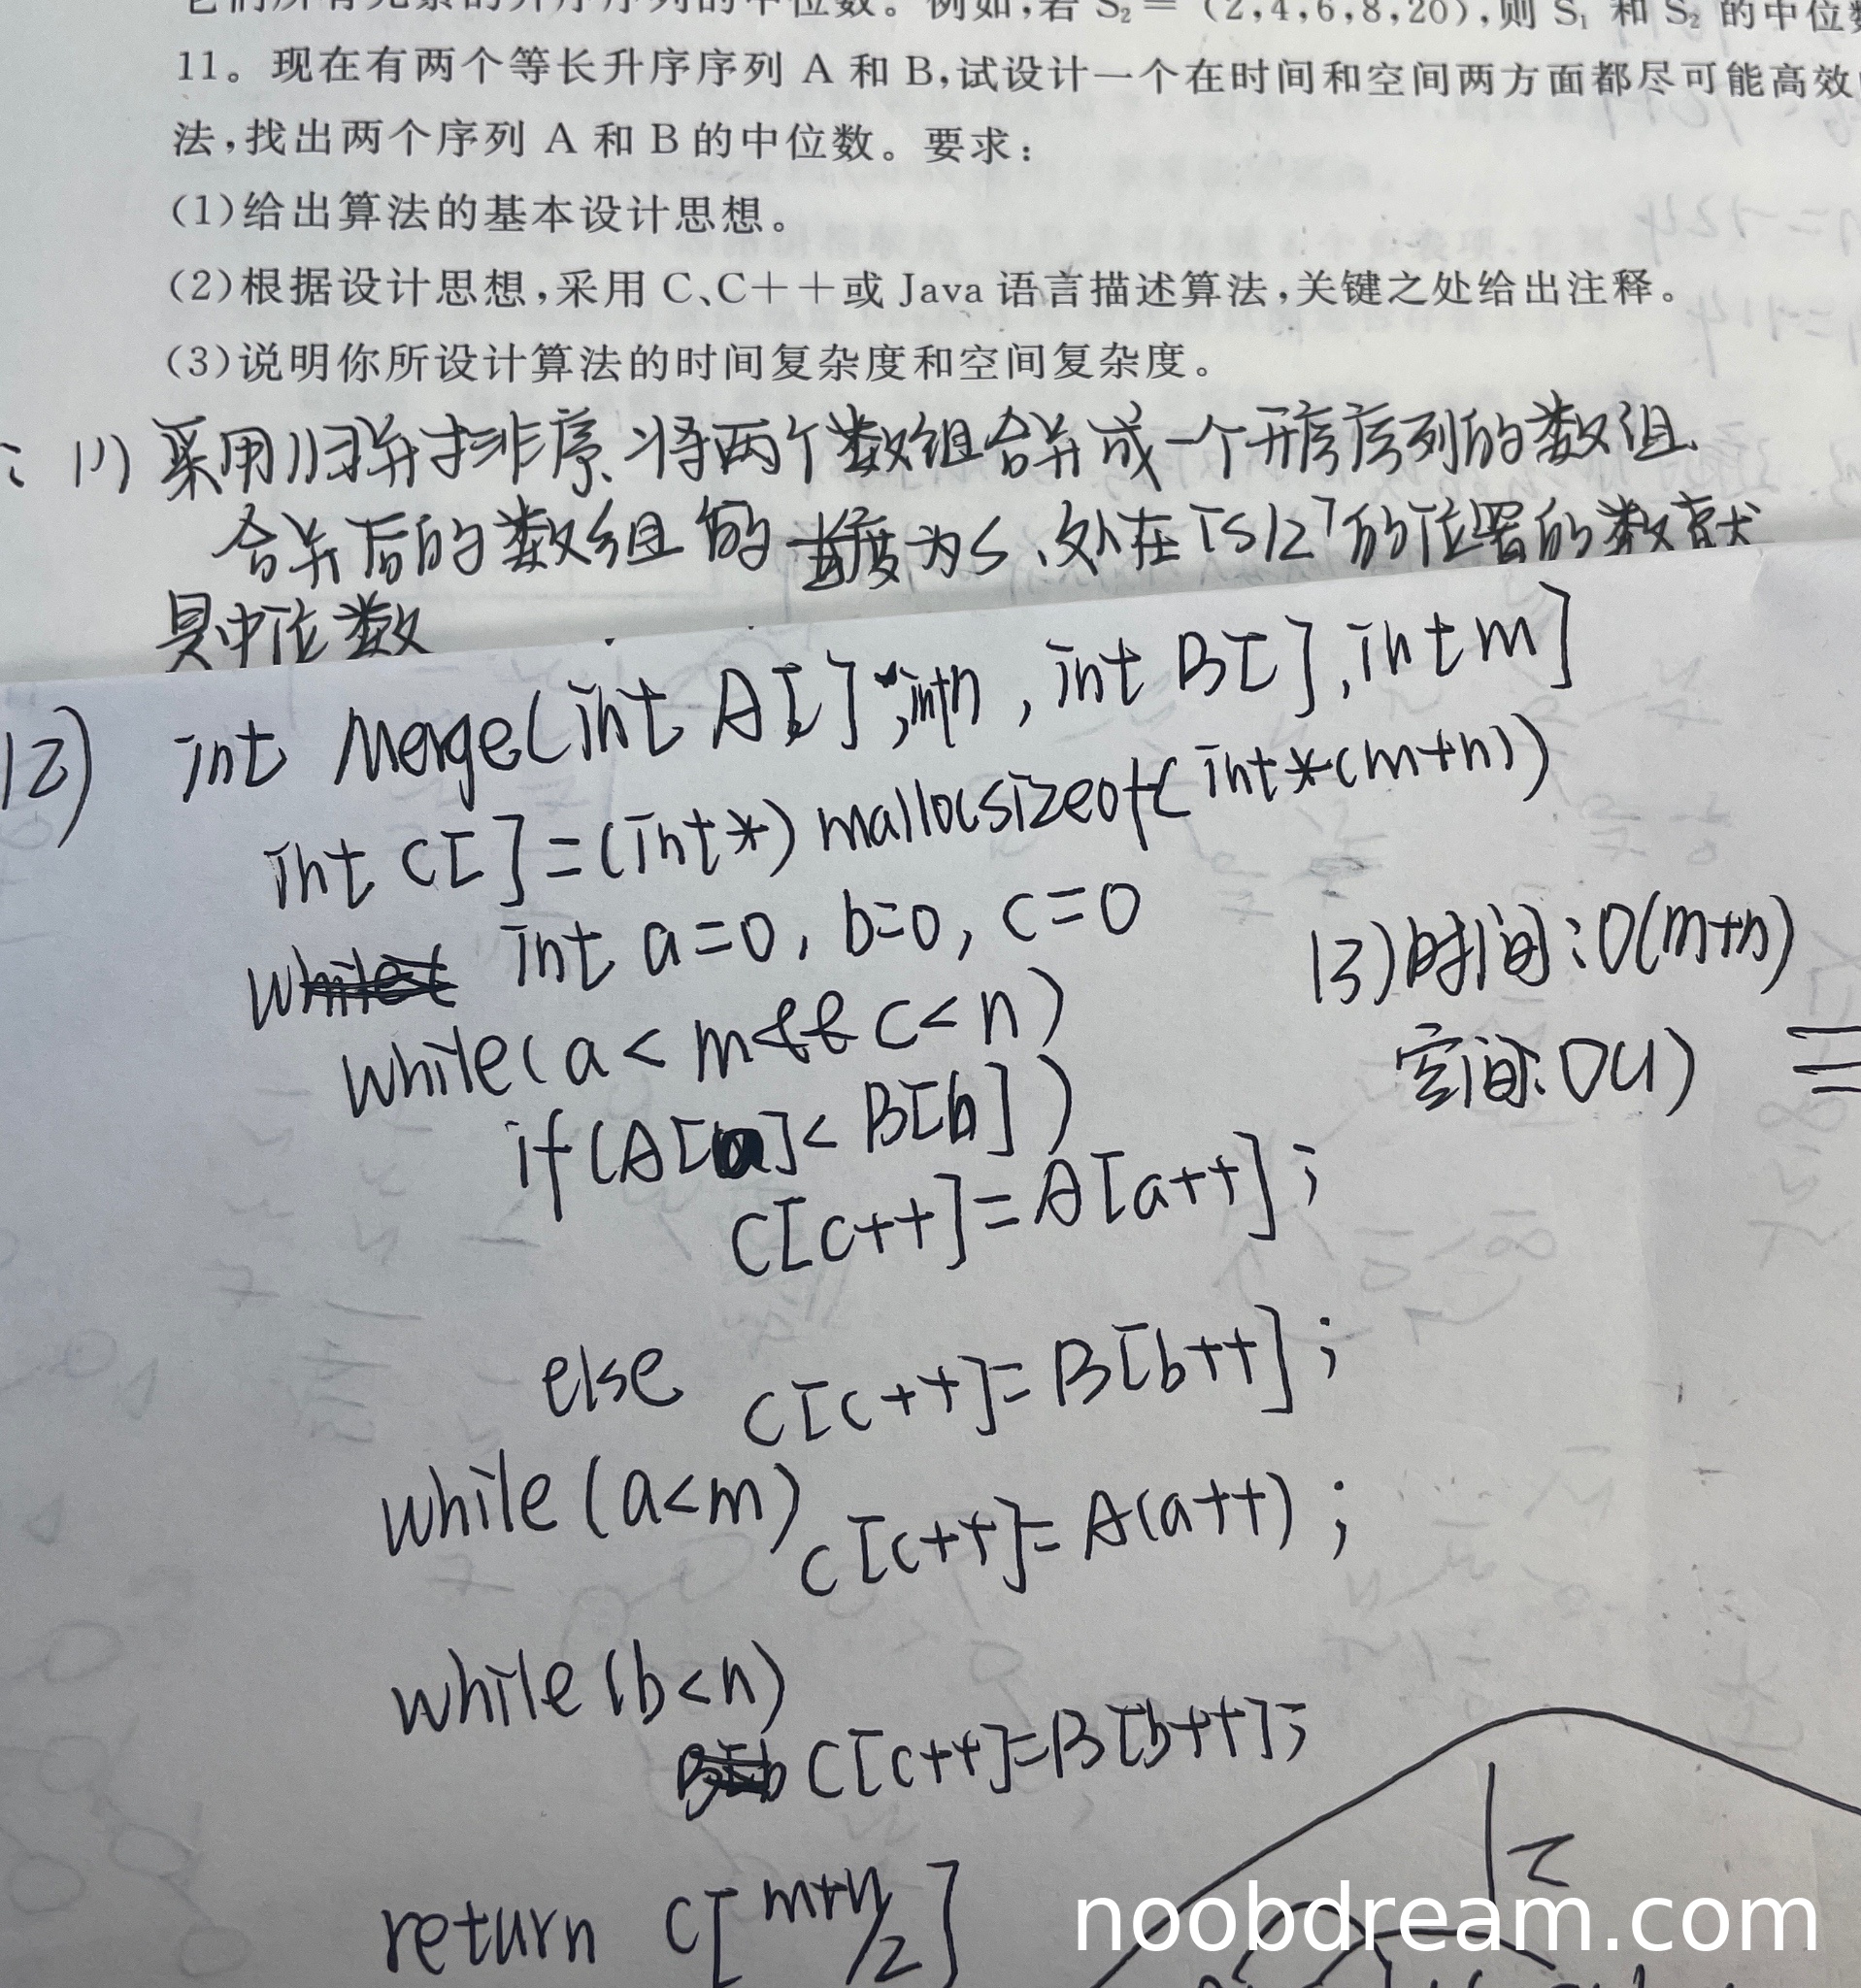 它们所有元素的升序序列的中位数。例如,若 S₂ = (2,4,6,8,20),则 S₁ 和 S₂ 的中位数
11。现在有两个等长升序序列 A 和 B,试设计一个在时间和空间两方面都尽可能高效
法,找出两个序列 A 和 B 的中位数。要求:
(1)给出算法的基本设计思想。
(2)根据设计思想,采用 C、C++或 Java 语言描述算法,关键之处给出注释。
(3)说明你所设计算法的时间复杂度和空间复杂度。
: (1) 采用归并排序、将两个数组合并成一个升序序列的数组、
合并后的数组的长度为S、处在⌈S/2⌉的位置的数就
是中位数
(2) int Merge(int A[], int n, int B[], int m]
int C[] = (int*) mallocsizeof(int*(m+n))
int a=0, b=0, c=0
while(a<m&&c<n)
if(A[a]<B[b])
C[c++]=A[a++];
else C[c++]=B[b++];
while(a<m) C[c++]=A(a++);
while(b<n)
C[c++]=B[b++];
return C[m+n/2]
(3)时间:O(m+n)
空间:O(1)
noobdream.com